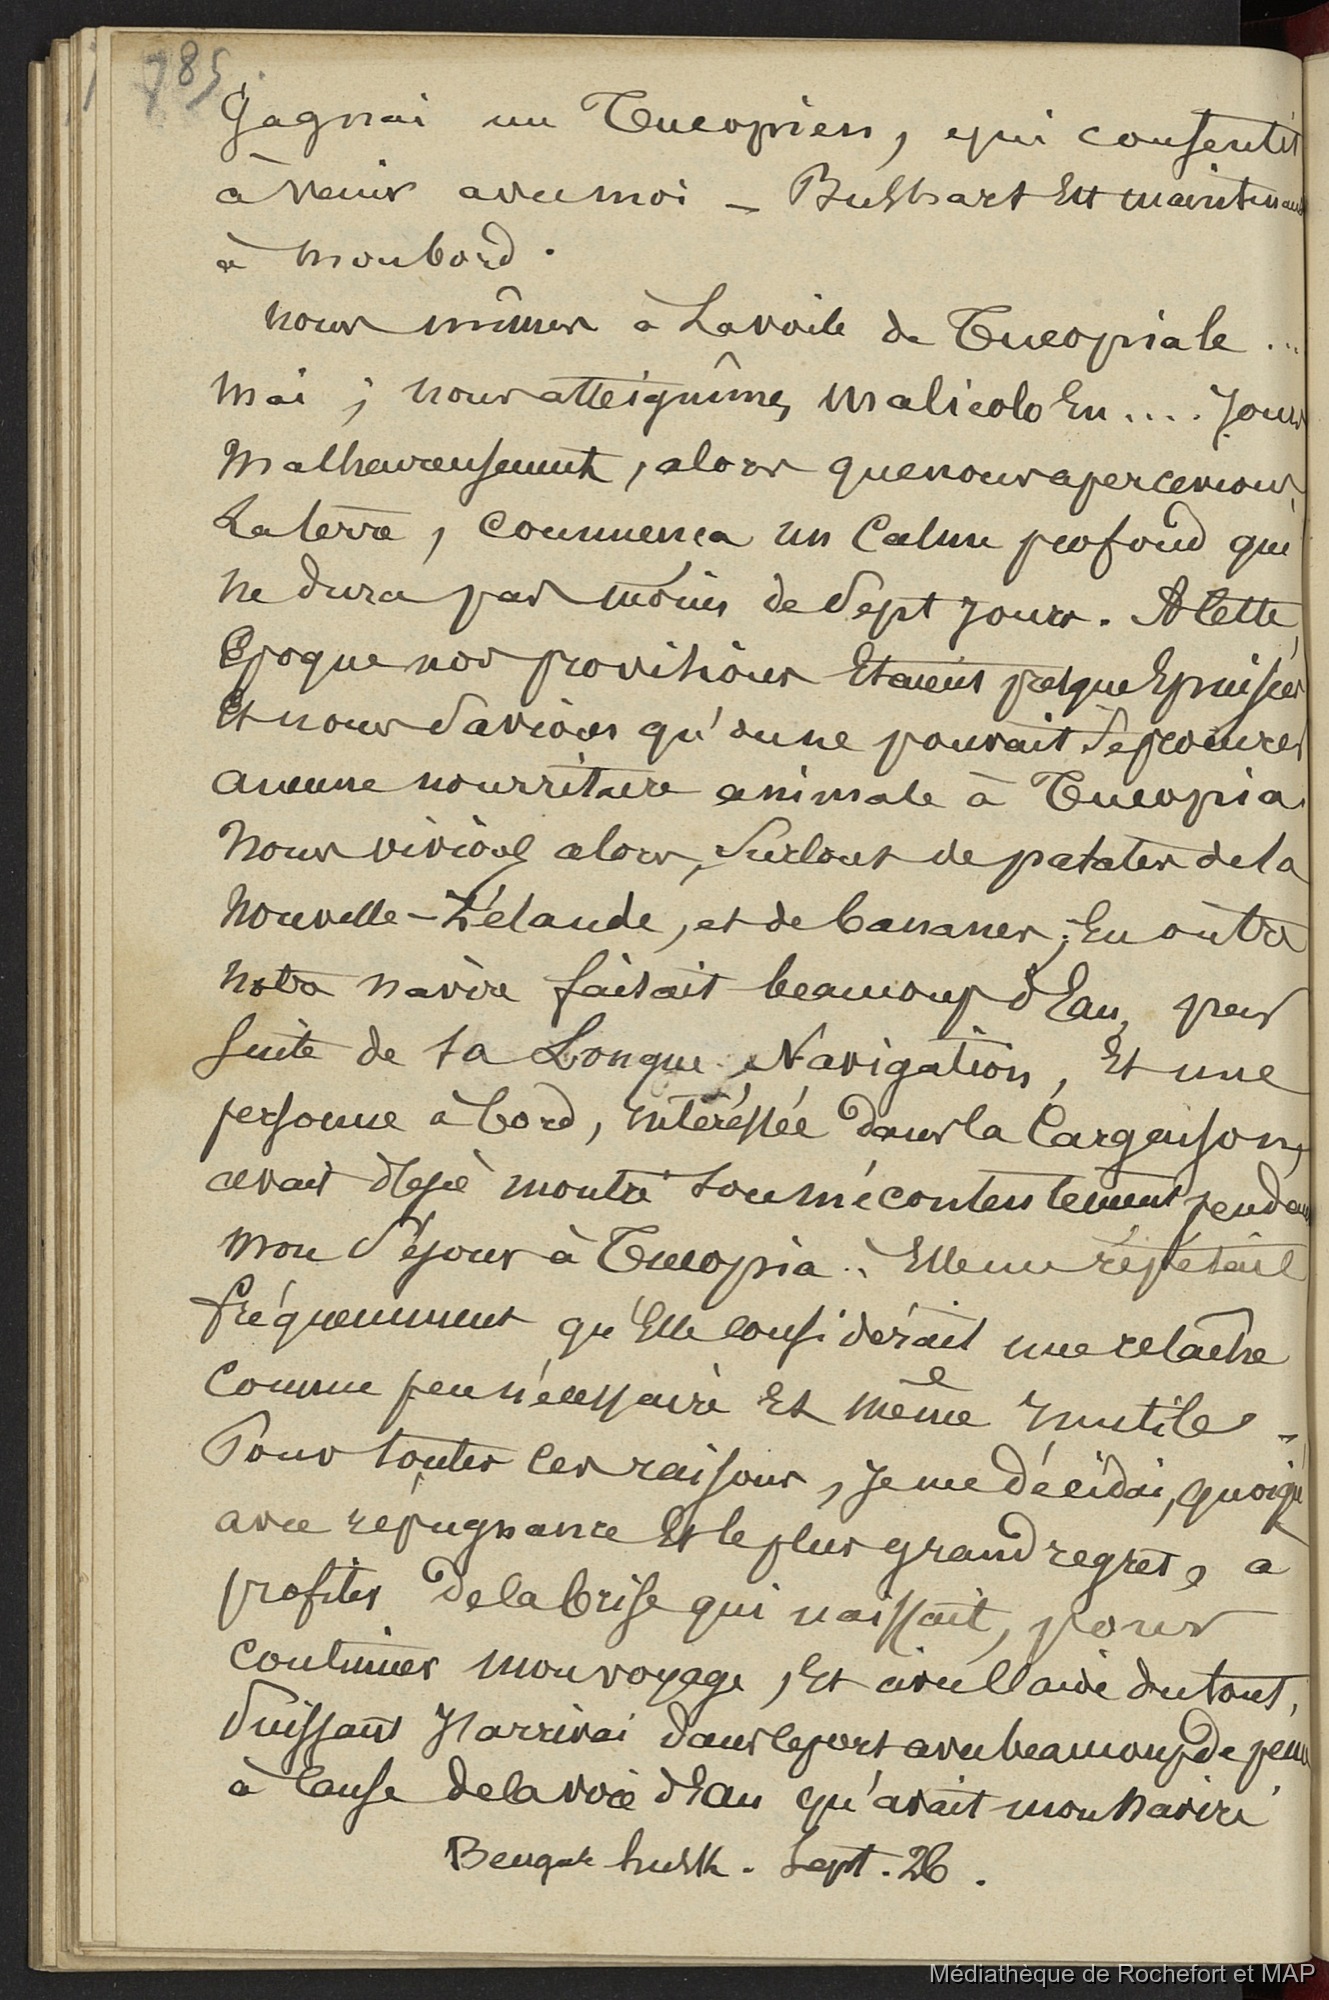 785.
Gagnai un Tucopien, qui consentit
à venir avec moi – Bushart Est maintenant
à mon bord.
Nous mîmes à La voile de Tucopia le ...
Mai ; nous atteignîmes Malicolo En .... Jours
Malheureusement, alors que nous apercevions
La terre, Commença un Calme profond qui
ne dura pas moins de Sept Jours. A Cette
Epoque nos provisions Etaient presque Epuisées
Et nous Savions qu'on ne pouvait Se procurer
aucune nourriture animale à Tucopia.
Nous vivions alors, Surtout de patates de la
Nouvelle-Zélande, et de bananes ; En outre
Notre navire faisait beaucoup d'Eau, par
Suite de sa Longue Navigation, Et une
personne à bord, intéressée dans la Cargaison,
avait déjà montré son mécontentement pendant
mon Séjour à Tucopia. Elle me répétait
fréquemment qu'Elle considérait une relâche
Comme peu nécessaire Et même Inutile –
Pour toutes ces raisons, Je me décidai, quoiqu'
avec répugnance Et le plus grand regret, a
profiter De la brise qui naissait, pour
Continuer mon voyage, Et avec l'aide du tout,
Puissant J'arrivai dans le port avec beaucoup de peine
à Cause de la voie d'Eau qu'avait mon navire
Bengale hurk. Sept. 26.
Médiathèque de Rochefort et MAP